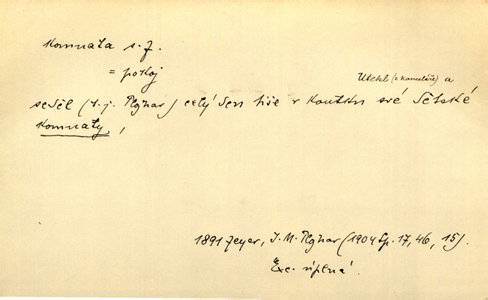 Komnata s. f.
= pokoj
Utekl (z kanceláře) a
seděl (t. j. Plojhar) celý den tiše v koutku své dětské
komnaty,
1891 Zeyer, J. M. Plojhar (1904 Sp. 17, 46, 15).
Exc. úplná.